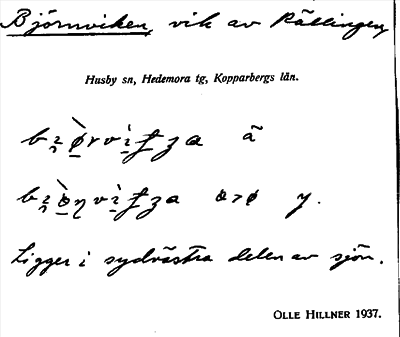 Björnviken, vik av Rällingen,
Husby sn, Hedemora tg, Kopparbergs län.
ã
y.
Ligger i sydvästra delen av sjön.
OLLE HILLNER 1937.